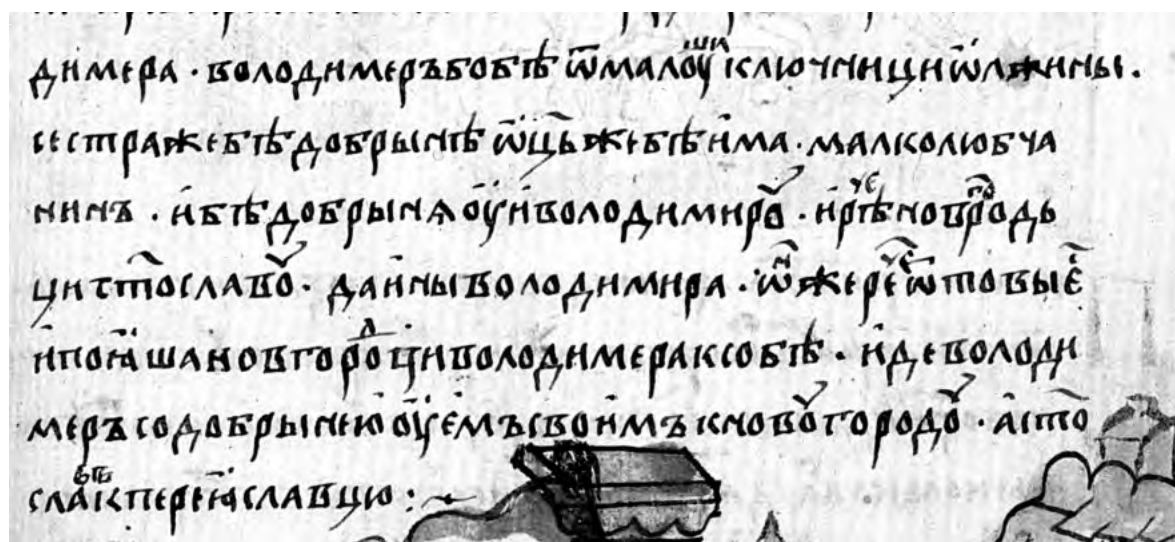 димера · володимеръ бо бѣ ѿ малоуши ключници ѡлжины ·
сестра же бѣ добрынѣ ѿць же бѣ има · малко любча
нинъ · и бѣ добрынѧ оуи володимироу · и рѣче новгородь
ци стославоу · даи ны володимира · ѡн же рече ѿ то вы е
и поꙗша новгородци володимера к собѣ · иде володи
меръ со добрынею оуемъ своимъ к новоугородоу · а сто
славъ к переꙗславцю :